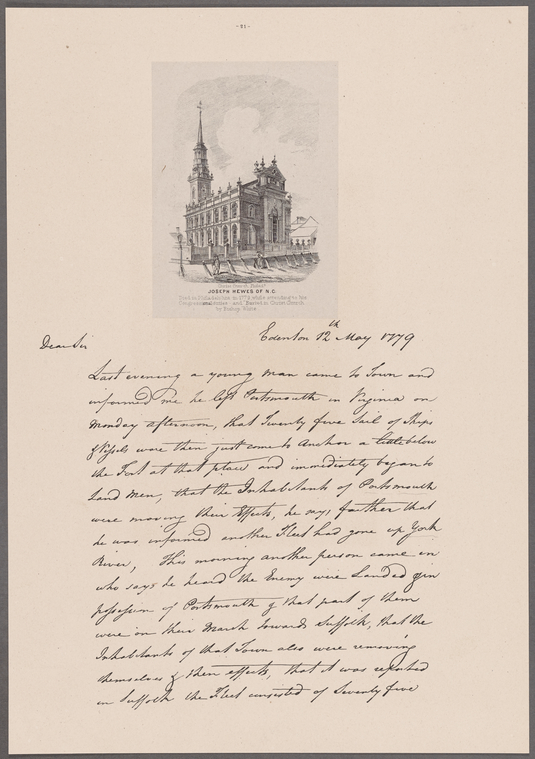 - 71 -
JOSEPH HEWES OF N.C.
Died in Philadelphia in 1779, while attending to his
Congressional duties and Buried in Christ Church
by Bishop White
Edenton 12th May 1779
Dear Sir
Last evening a young man came to Town and
informed me he left Portsmouth in Virginia on
Monday afternoon, that Twenty five Sail of Ships
& Vessels were then just come to Anchor a little below
the Fort at that place and immediately began to
Land Men, that the Inhabitants of Portsmouth
were moving their Effects, he says, farther that
he was informed another Fleet had gone up York
River, This morning another person came in
who says he heard the Enemy were Landed & in
possession of Portsmouth & that part of them
were on their March towards Suffolk, that the
Inhabitants of that Town also were removing
themselves & their effects, that it was reported
in Suffolk the Fleet consisted of Seventy five